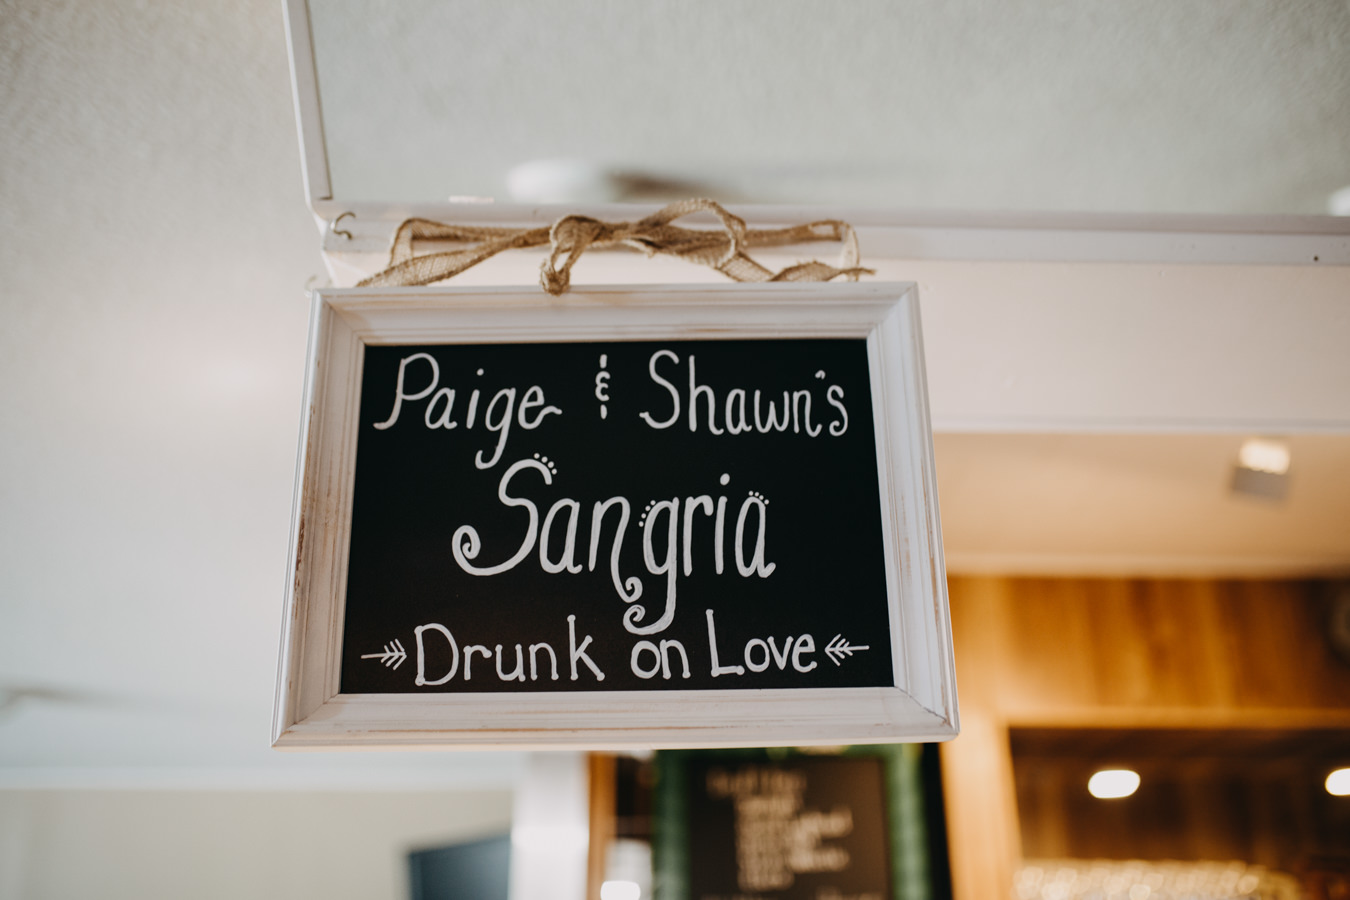 Paige & Shawn's
Sangria
Drunk on Love